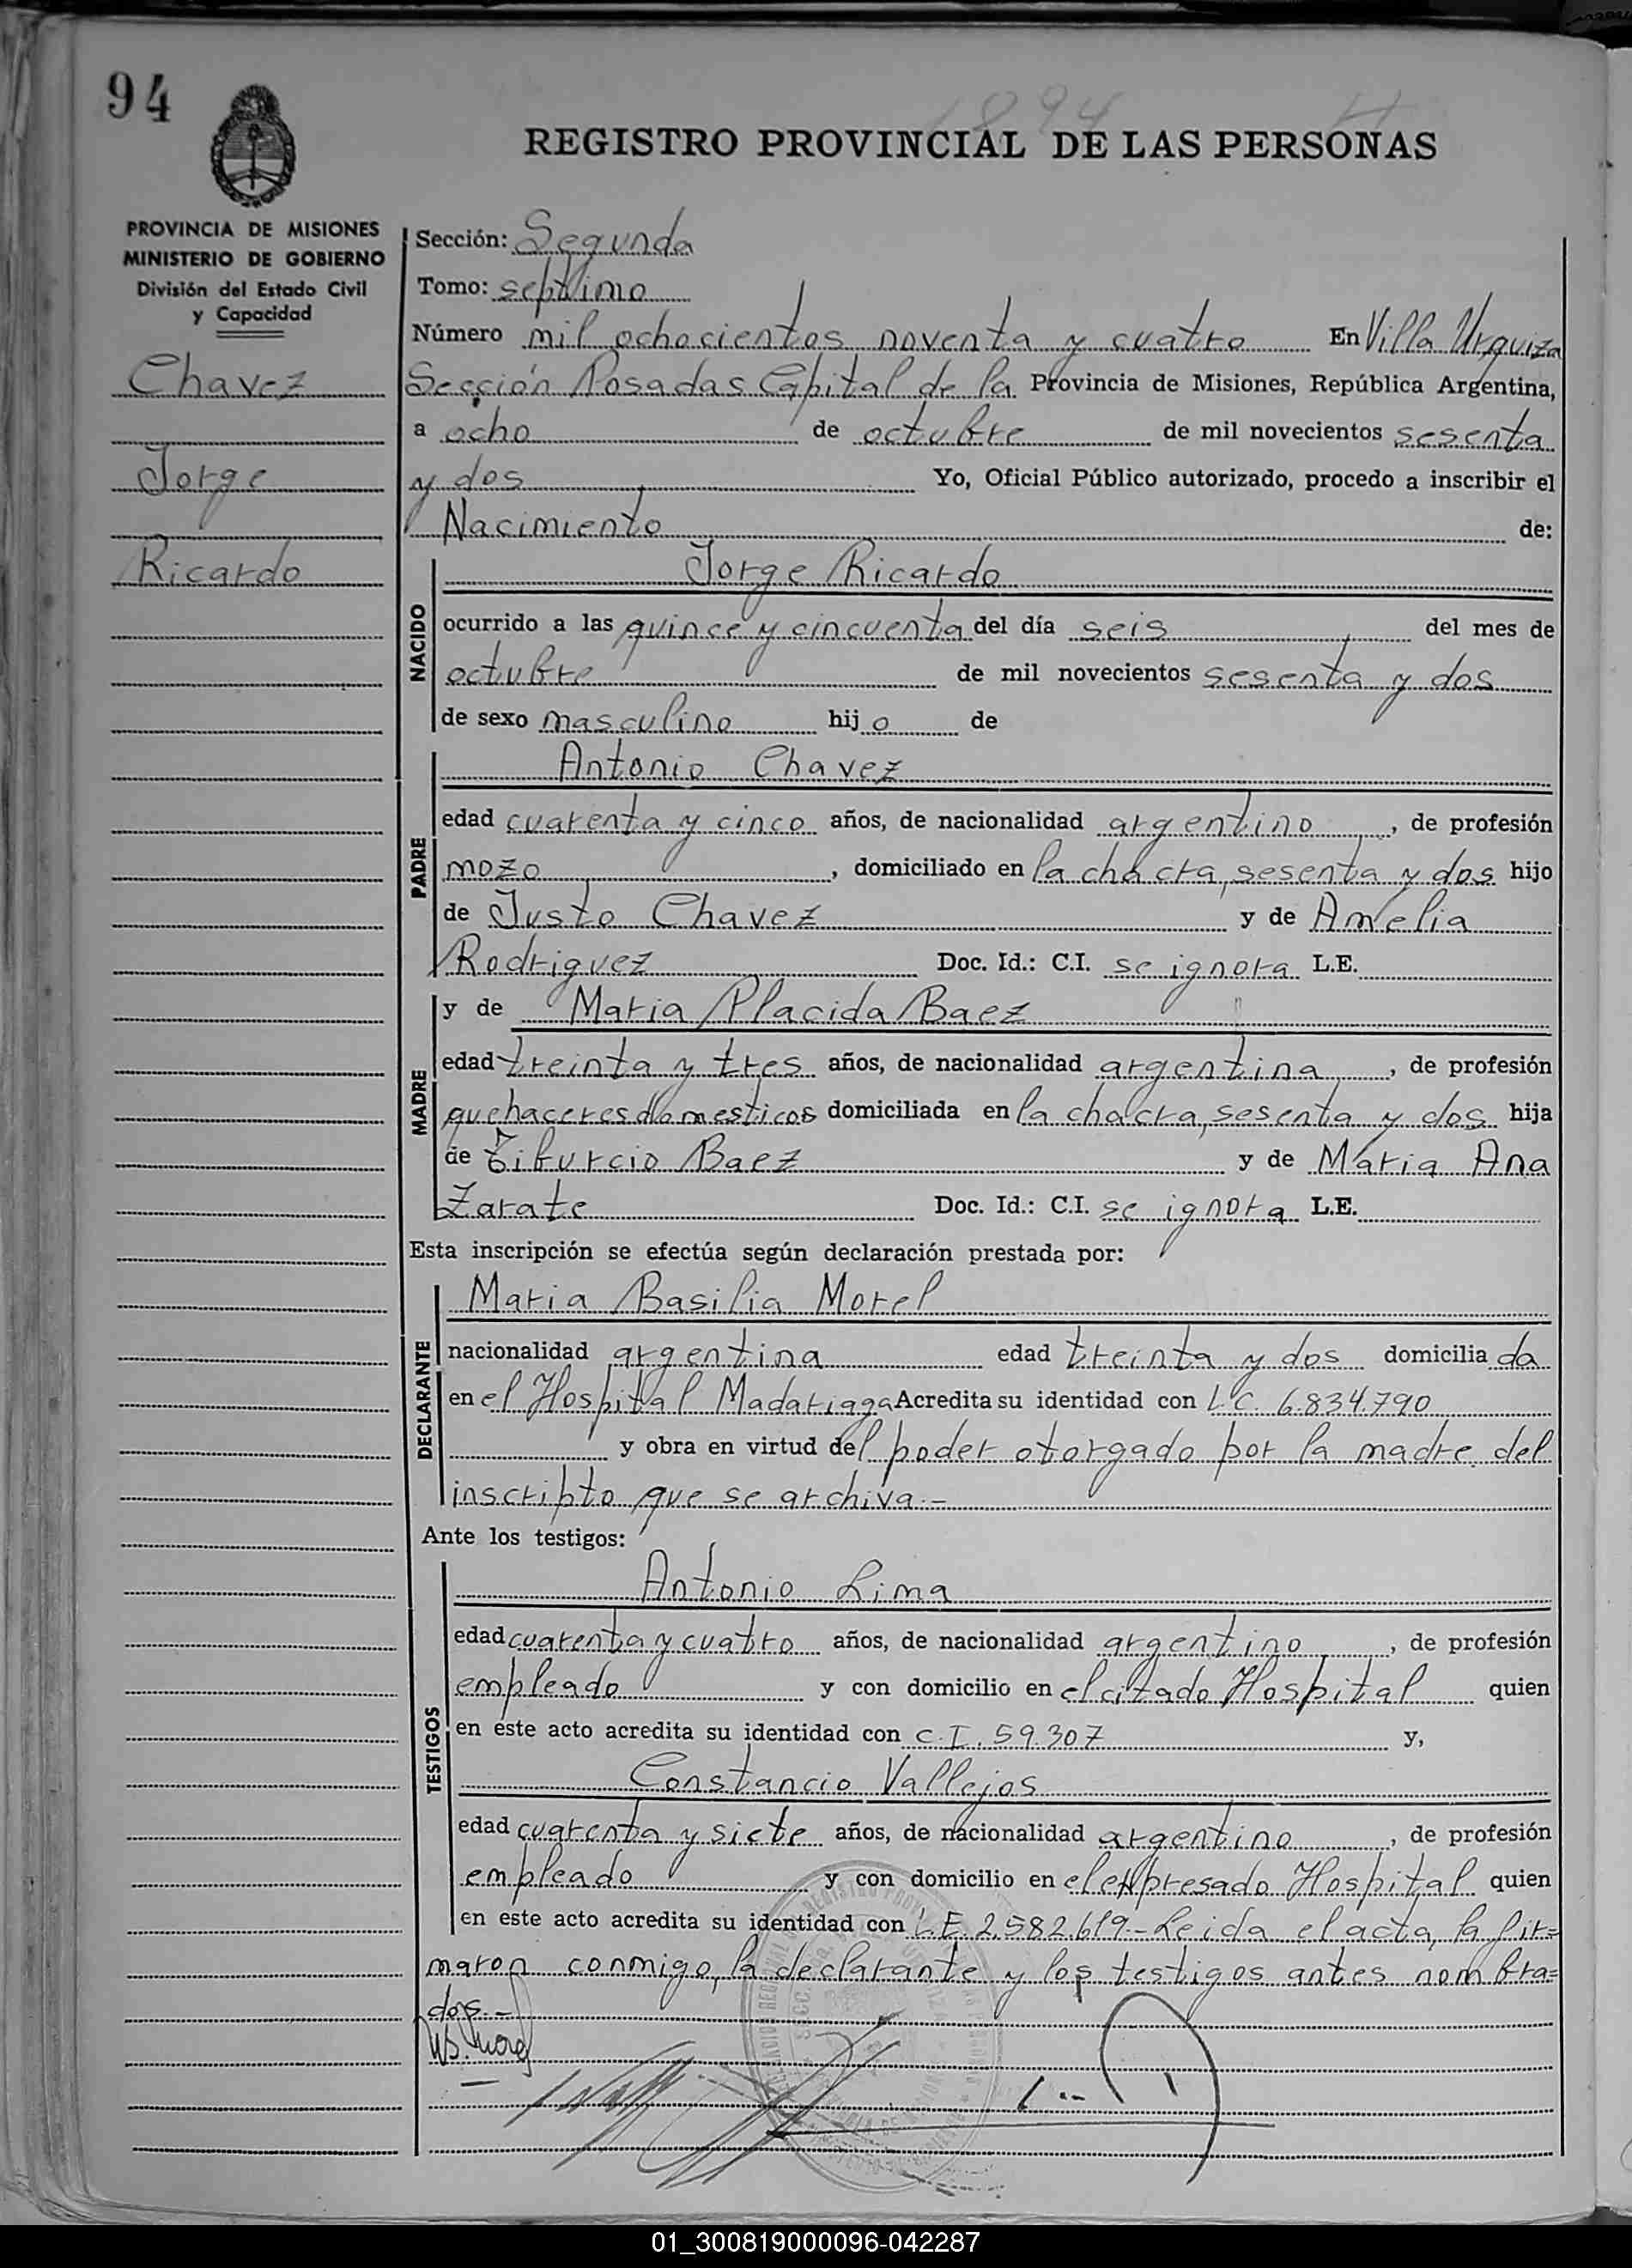 94
1894
REGISTRO PROVINCIAL DE LAS PERSONAS
PROVINCIA DE MISIONES
MINISTERIO DE GOBIERNO
División del Estado Civil
y Capacidad
Chavez
Jorge
Ricardo
Sección: Segunda
Tomo: septimo
Número mil ochocientos noventa y cuatro En Villa Urquiza
Sección Posadas Capital de la Provincia de Misiones, República Argentina,
a ocho de octubre de mil novecientos sesenta
y dos Yo, Oficial Público autorizado, procedo a inscribir el
Nacimiento de:
NACIDO
Jorge Ricardo
ocurrido a las quince y cincuenta del día seis del mes de
octubre de mil novecientos sesenta y dos
de sexo masculino hijo de
PADRE
Antonio Chavez
edad cuarenta y cinco años, de nacionalidad argentino, de profesión
mozo, domiciliado en la chacra, sesenta y dos hijo
de Justo Chavez y de Amelia
Rodriguez Doc. Id.: C.I. se ignora L.E.
MADRE
y de Maria Placida Baez
edad treinta y tres años, de nacionalidad argentina, de profesión
quehaceres domesticos domiciliada en la chacra, sesenta y dos hija
de Tiburcio Baez y de Maria Ana
Zarate Doc. Id.: C.I. se ignora L.E.
Esta inscripción se efectúa según declaración prestada por:
DECLARANTE
Maria Basilia Morel
nacionalidad argentina edad treinta y dos domiciliada
en el Hospital Madariaga Acredita su identidad con L.C. 6.834.790
y obra en virtud del poder otorgado por la madre del
inscripto que se archiva.-
Ante los testigos:
TESTIGOS
Antonio Lima
edad cuarenta y cuatro años, de nacionalidad argentino, de profesión
empleado y con domicilio en el citado Hospital quien
en este acto acredita su identidad con C.I. 59.307 y,
Constancio Vallejos
edad cuarenta y siete años, de nacionalidad argentino, de profesión
empleado y con domicilio en el expresado Hospital quien
en este acto acredita su identidad con L.E. 2.582.619.- Leida el acta, la fir=
maron conmigo, la declarante y los testigos antes nombra=
dos.-
01_300819000096-042287